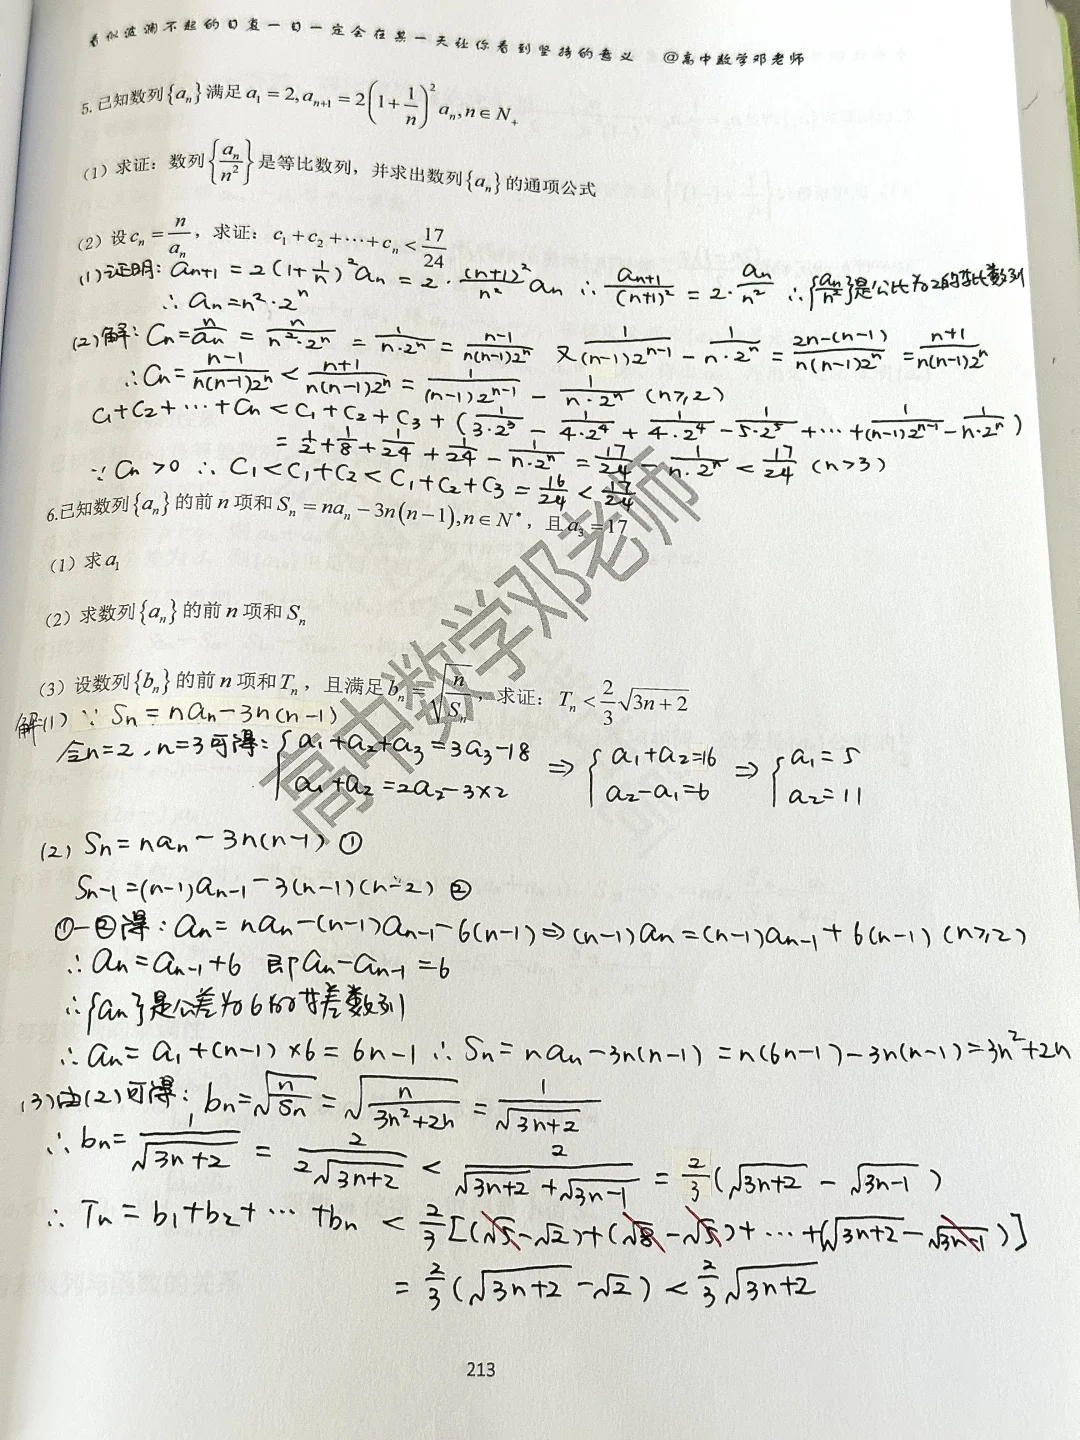 看似波澜不起的日复一日一定会在某一天让你看到坚持的意义 @高中数学邓老师
5.已知数列{aₙ}满足a₁=2,aₙ₊₁=2(1+1/n)²aₙ,n∈N₊
(1)求证:数列{aₙ/n²}是等比数列,并求出数列{aₙ}的通项公式
(2)设cₙ=n/aₙ,求证:c₁+c₂+⋯+cₙ<17/24
(1)证明:aₙ₊₁=2(1+1/n)²aₙ=2·(n+1)²/n² aₙ ∴aₙ₊₁/(n+1)²=2·aₙ/n² ∴{aₙ/n²}是公比为2的等比数列
∴aₙ=n²·2ⁿ
(2)解:Cₙ=n/aₙ=n/(n²·2ⁿ)=1/(n·2ⁿ)=(n-1)/(n(n-1)2ⁿ) 又1/((n-1)2ⁿ⁻¹)-1/(n·2ⁿ)=(2n-(n-1))/(n(n-1)2ⁿ)=(n+1)/(n(n-1)2ⁿ)
∴Cₙ=(n-1)/(n(n-1)2ⁿ)<(n+1)/(n(n-1)2ⁿ)=1/((n-1)2ⁿ⁻¹)-1/(n·2ⁿ)(n≥2)
C₁+C₂+⋯+Cₙ<C₁+C₂+C₃+(1/(3·2³)-1/(4·2⁴)+1/(4·2⁴)-1/(5·2⁵)+⋯+1/((n-1)2ⁿ⁻¹)-1/(n·2ⁿ))
=1/2+1/8+1/24+1/24-1/(n·2ⁿ)=17/24-1/(n·2ⁿ)<17/24(n>3)
∵Cₙ>0 ∴C₁<C₁+C₂<C₁+C₂+C₃=16/24<17/24
6.已知数列{aₙ}的前n项和Sₙ=naₙ-3n(n-1),n∈N*,且a₃=17
(1)求a₁
(2)求数列{aₙ}的前n项和Sₙ
(3)设数列{bₙ}的前n项和Tₙ,且满足bₙ=√(n/Sₙ),求证:Tₙ<2/3√(3n+2)
解(1)∵Sₙ=naₙ-3n(n-1)
令n=2,n=3可得:{a₁+a₂+a₃=3a₃-18 a₁+a₂=2a₂-3×2 ⇒{a₁+a₂=16 a₂-a₁=6 ⇒{a₁=5 a₂=11
(2)Sₙ=naₙ-3n(n-1)①
Sₙ₋₁=(n-1)aₙ₋₁-3(n-1)(n-2)②
①-②得:aₙ=naₙ-(n-1)aₙ₋₁-6(n-1)⇒(n-1)aₙ=(n-1)aₙ₋₁+6(n-1)(n≥2)
∴aₙ=aₙ₋₁+6 即aₙ-aₙ₋₁=6
∴{aₙ}是公差为6的等差数列
∴aₙ=a₁+(n-1)×6=6n-1 ∴Sₙ=naₙ-3n(n-1)=n(6n-1)-3n(n-1)=3n²+2n
(3)由(2)可得:bₙ=√(n/Sₙ)=√(n/(3n²+2n))=1/√(3n+2)
∴bₙ=1/√(3n+2)=2/(2√(3n+2))<2/(√(3n+2)+√(3n-1))=2/3(√(3n+2)-√(3n-1))
∴Tₙ=b₁+b₂+⋯+bₙ<2/3[(√5-√2)+(√8-√5)+⋯+(√(3n+2)-√(3n-1))]
=2/3(√(3n+2)-√2)<2/3√(3n+2)
高中数学邓老师
213